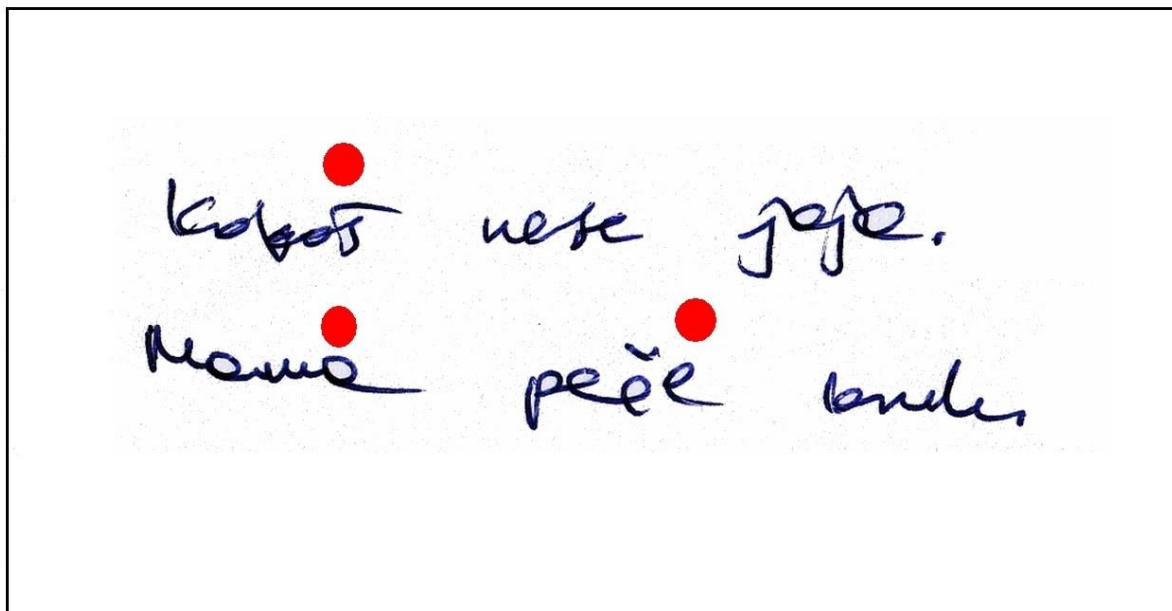 Kokoš nese jaja.
Mama peče kruh.